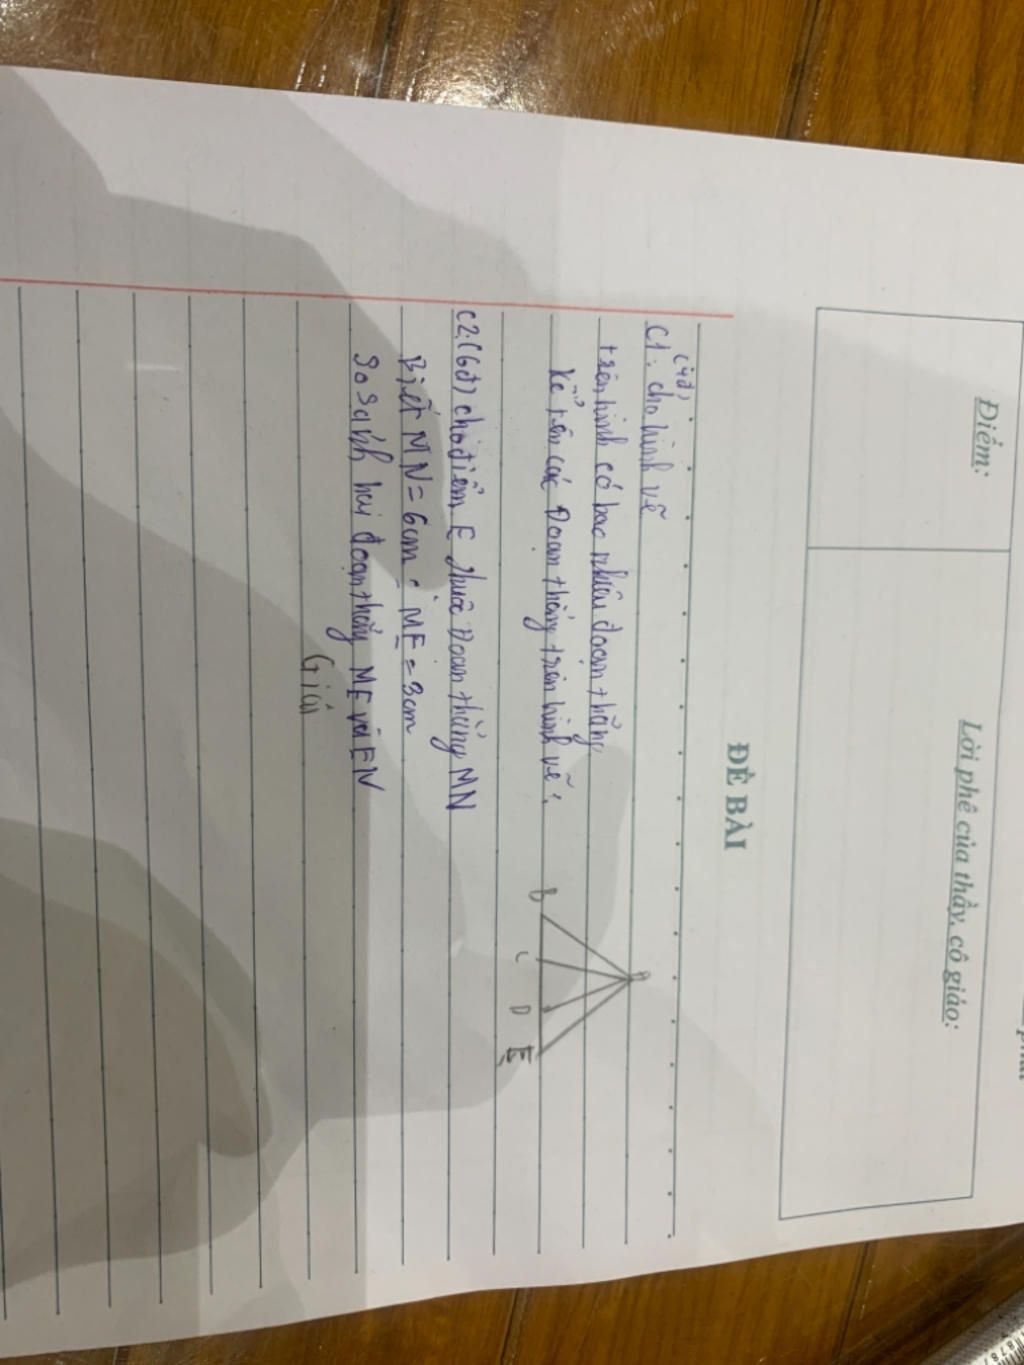 Điểm:
Lời phê của thầy, cô giáo:
ĐỀ BÀI
(4đ)
C1: cho hình vẽ
trên hình có bao nhiêu đoạn thẳng
kể tên các Đoạn thẳng trên hình vẽ:
B
C
D
E
C2: (6đ) cho điểm E thuộc Đoạn thẳng MN
Biết MN = 6cm; ME = 3cm
So sánh hai đoạn thẳng ME và EN
Giải